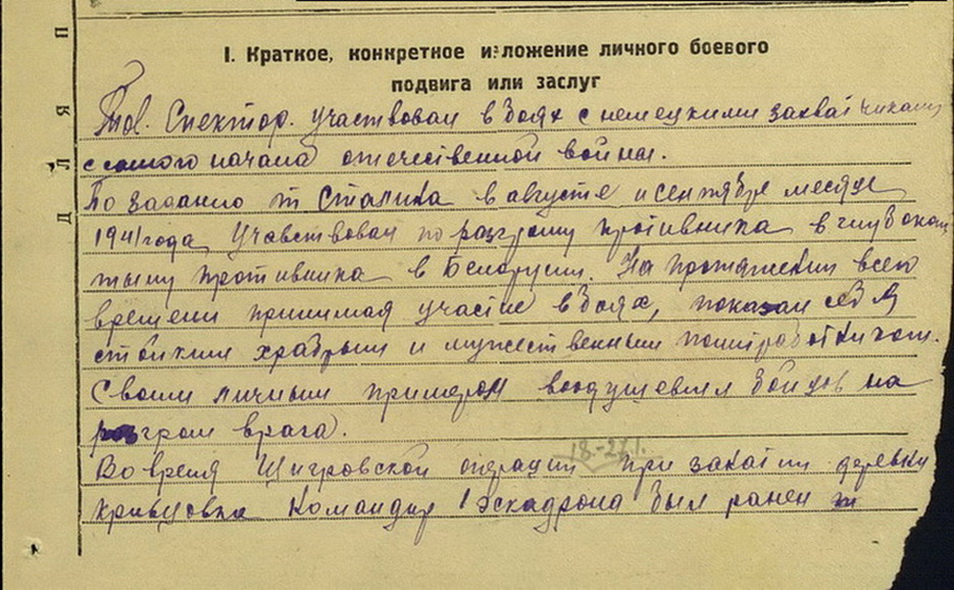 Д Л Я П
I. Краткое, конкретное изложение личного боевого
подвига или заслуг
Тов. Спектор. участвовал в боях с немецкими захватчиками
с самого начала отечественной войны.
По заданию т Сталина в августе и сентябре месяце
1941 года, Учавствовал по разгрому противника в глубоком
тылу противника в Белорусии. На протяжении всего
времени принимая участие в боях, показал себя
стойким храбрым и мужественным политработником.
Своим личным примером воодушевлял бойцов на
разгром врага.
18.-27.1.
Во время Щигровской операции при захвате деревни
Кривцовка Командир 1 эскадрона был ранен